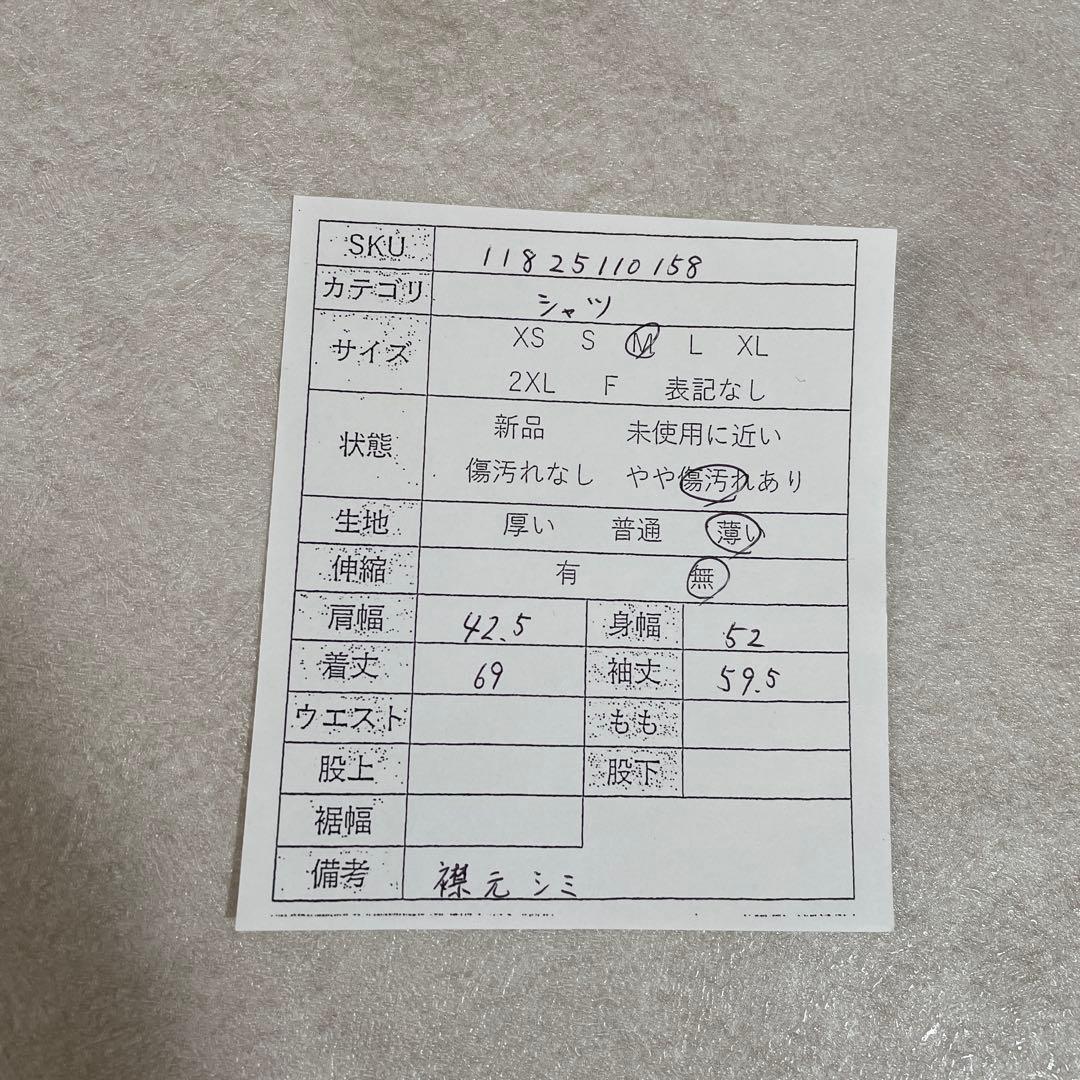 SKU 11825110158
カテゴリ シャツ
サイズ XS S M L XL
2XL F 表記なし
状態 新品 未使用に近い
傷汚れなし やや傷汚れあり
生地 厚い 普通 薄い
伸縮 有 無
肩幅 42.5 身幅 52
着丈 69 袖丈 59.5
ウエスト もも
股上 股下
裾幅
備考 襟元シミ